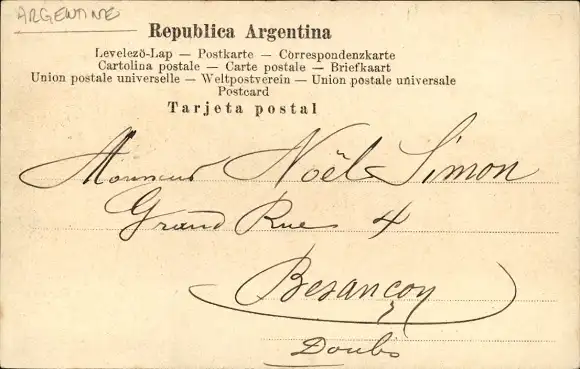 ARGENTINE
Republica Argentina
Levelező-Lap — Postkarte — Correspondenzkarte
Cartolina postale — Carte postale — Briefkaart
Union postale universelle — Weltpostverein — Union postale universale
Postcard
Tarjeta postal
Monsieur Noël Simon
Grand Rue 4
Besançon
Doubs